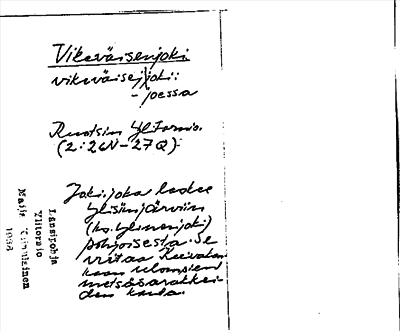 Vikeväisenjoki
vikeväisej̄joki:
- joessa
Ruotsin Ylitornio.
(2:26N-27Q)
Joki, joka laskee
Ylisinjärviin
(ks. Ylinenjoki)
pohjoisesta. Se
virtaa
metsäsarakkei-
den kautta.
Länsipohja
Ylitornio
Maija
1988